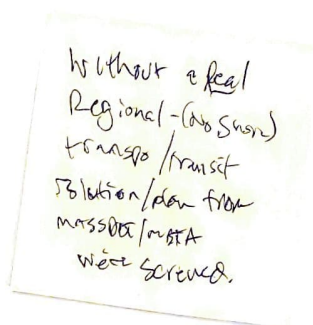 Without a Real
Regional - (no
transpo/transit
solution/plan from
MassDOT/MBTA
we're screwed.